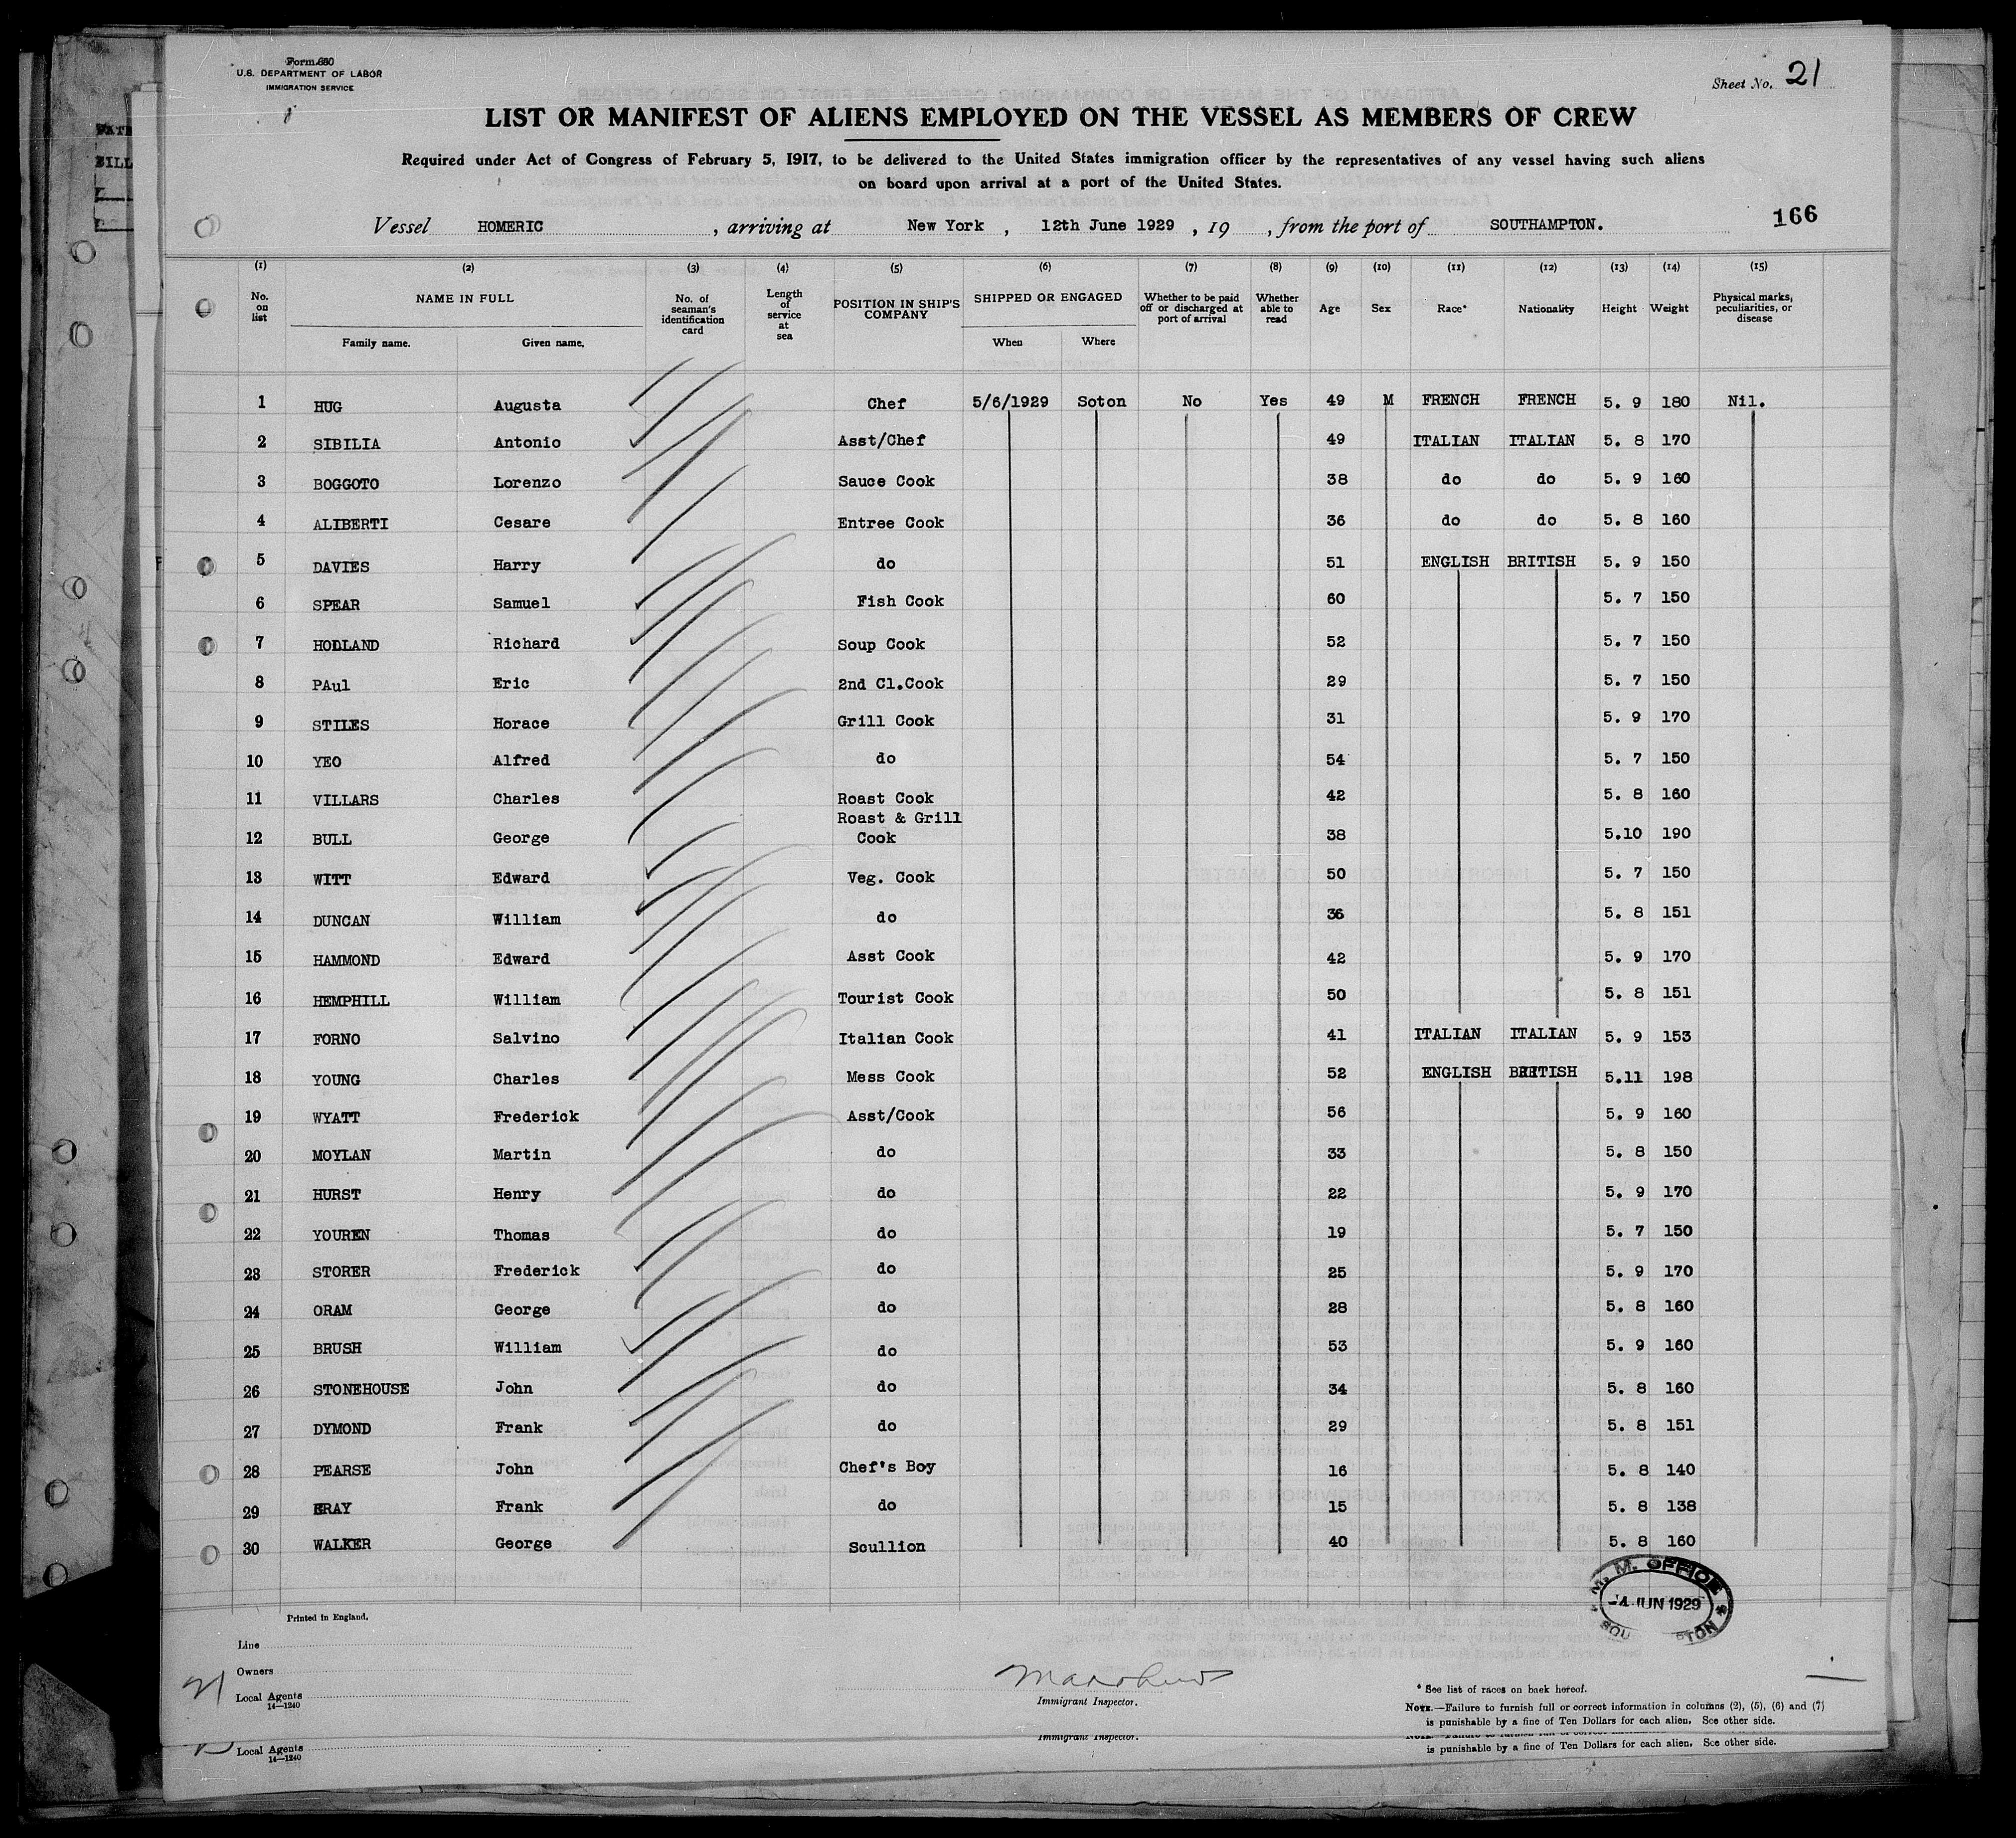 Form 680
U.S. DEPARTMENT OF LABOR
IMMIGRATION SERVICE
Sheet No. 21
LIST OR MANIFEST OF ALIENS EMPLOYED ON THE VESSEL AS MEMBERS OF CREW
Required under Act of Congress of February 5, 1917, to be delivered to the United States immigration officer by the representatives of any vessel having such aliens
on board upon arrival at a port of the United States.
166
Vessel HOMERIC , arriving at New York , 12th June 1929 , 19 , from the port of SOUTHAMPTON.
(1) (2) (3) (4) (5) (6) (7) (8) (9) (10) (11) (12) (13) (14) (15)
No. on list NAME IN FULL Family name. Given name. No. of seaman's identification card Length of service at sea POSITION IN SHIP'S COMPANY SHIPPED OR ENGAGED When Where Whether to be paid off or discharged at port of arrival Whether able to read Age Sex Race* Nationality Height Weight Physical marks, peculiarities, or disease
1 HUG Augusta Chef 5/6/1929 Soton No Yes 49 M FRENCH FRENCH 5. 9 180 Nil.
2 SIBILIA Antonio Asst/Chef 49 ITALIAN ITALIAN 5. 8 170
3 BOGGOTO Lorenzo Sauce Cook 38 do do 5. 9 160
4 ALIBERTI Cesare Entree Cook 36 do do 5. 8 160
5 DAVIES Harry do 51 ENGLISH BRITISH 5. 9 150
6 SPEAR Samuel Fish Cook 60 5. 7 150
7 HOLLAND Richard Soup Cook 52 5. 7 150
8 PAul Eric 2nd Cl.Cook 29 5. 7 150
9 STILES Horace Grill Cook 31 5. 9 170
10 YEO Alfred do 54 5. 7 150
11 VILLARS Charles Roast Cook 42 5. 8 160
12 BULL George Roast & Grill Cook 38 5.10 190
13 WITT Edward Veg. Cook 50 5. 7 150
14 DUNCAN William do 36 5. 8 151
15 HAMMOND Edward Asst Cook 42 5. 9 170
16 HEMPHILL William Tourist Cook 50 5. 8 151
17 FORNO Salvino Italian Cook 41 ITALIAN ITALIAN 5. 9 153
18 YOUNG Charles Mess Cook 52 ENGLISH BRITISH 5.11 198
19 WYATT Frederick Asst/Cook 56 5. 9 160
20 MOYLAN Martin do 33 5. 8 150
21 HURST Henry do 22 5. 9 170
22 YOUREN Thomas do 19 5. 7 150
23 STORER Frederick do 25 5. 9 170
24 ORAM George do 28 5. 8 160
25 BRUSH William do 53 5. 9 160
26 STONEHOUSE John do 34 5. 8 160
27 DYMOND Frank do 29 5. 8 151
28 PEARSE John Chef's Boy 16 5. 8 140
29 Frank do 15 5. 8 138
30 WALKER George Scullion 40 5. 8 160
M. M. OFFICE
4 JUN 1929
Printed in England.
Line
Owners
21 Local Agents
14—1240
Immigrant Inspector.
* See list of races on back hereof.
NOTE.—Failure to furnish full or correct information in columns (2), (5), (6) and (7)
is punishable by a fine of Ten Dollars for each alien. See other side.
Local Agents
14—1240
Immigrant Inspector.
is punishable by a fine of Ten Dollars for each alien. See other side.